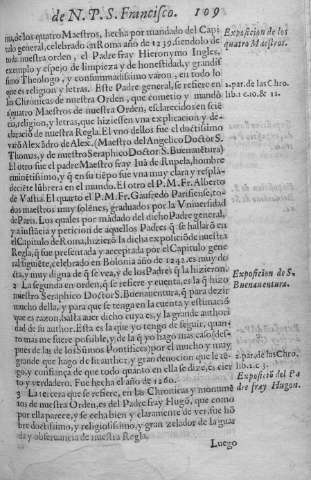 de N. P. S. Francisco. 109
na, de los quatro Maestros, hecha por mandado del Capi
tulo general, celebrado en Roma año de 1239. siendolo de
toda nuestra orden, el Padre fray Hieronymo Ingles,
exemplo y espejo de limpieza y de honestidad, y grandis
simo Theologo, y consummadissimo varon, en todo lo
que es religion y letras. Este Padre general, se refiere en
las Chronicas de nuestra Orden, que cometio y mandò
à quatro Maestros de nuestra Orden, esclarecidos en sciē
cia, religion, y letras, que hiziessen vna explicacion y de-
claraciō de nuestra Regla. El vno dellos fue el doctissimo
varō Alexādro de Alex. (Maestro del Angelico Doctor S.
Thomas, y de nuestro Seraphico Doctor S. Buenauētura)
El otro fue el padre Maestro fray Iuā de Rupela, hombre
eminētissimo, y q̄ en su tiēpo fue vna muy clara y resplā-
deciēte lūbrera en el mundo. El otro el P. M. Fr. Alberto
de Vasta. El quarto el P. M. Fr. Gaufedo Parisense, to-
dos maestros muy solēnes, graduados por la Vniuersidad
de Paris. Los quales por mādado del dicho Padre general,
y a instācia y peticion de aquellos Padres q̄ se hallarō en
el Capitulo de Roma, hizierō la dicha exposiciō de nuestra
Regla, q̄ fue presentada y acceptada por el Capitulo gene
ral siguiēte, celebrado en Bolonia año de 1242. es muy do-
cta, y muy digna de q̄ se vea, y de los Padres q̄ la hizieron.
2 La segunda en orden, q̄ se refiere y cuenta, es la q̄ hizo
nuestro Seraphico Doctor S. Buenauentura, q̄ para dezir
mucho della, y para que se tenga en la cuenta y estimaciō
que es razon, basta auer dicho cuya es, y la grande authori
dad de su author. Esta es la que yo tengo de seguir, quan-
to mas me fuere possible, y de la q̄ yo hago mas caso (des-
pues de las de los Sūmos Pontifices) por el mucho y muy
grande que hago de su author, y gran deuocion que le tē-
go, y confiança de que todo quanto en ella se dize, es cier
to y verdadero. Fue hecha el año de 1260.
3 La tercera que se refiere, en las Chronicas y monumē
tos de nuestra Orden, es del Padre fray Hugo, que como
por ella parece, y se echa bien y claramente de ver, fue hō
bre doctissimo, y religiosissimo, y gran zelador de la guar
da y obseruancia de nuestra Regla.
Luego
Exposicion de los
quatro Maestros.
2. par. de las Chro.
lib. 1. c. 10. & 12.
Exposicion de S.
Buenauentura.
2. par. de las Chro.
lib. 1. c. 3.
Exposiciō del Pa
dre fray Hugon.